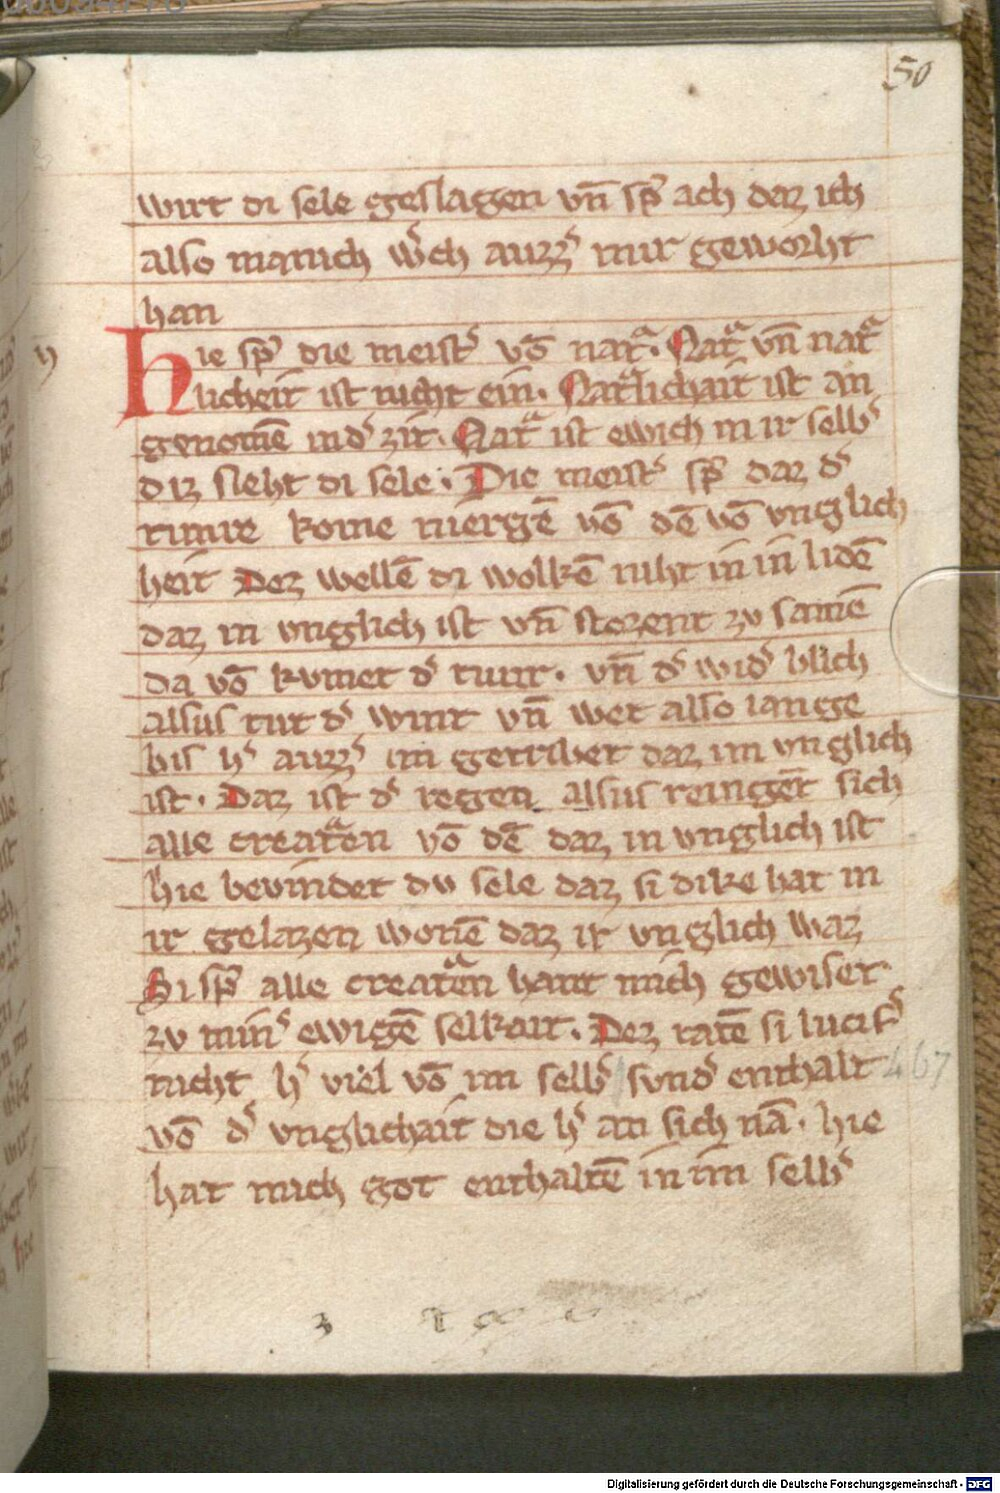 50
wirt di sele geslagen vn̄ sp̄ ach daz ich
also manich w̓ch auzz̓ mir geworht
han
h
hie sp̄ die meist̓ vō natᷓ. Natᷓ vn̄ natᷓ
licheit ist nicht ein. Natᷓlichait ist an
genomē ind̓ zit. Natᷓ ist ewich in ir selb̓
diz sieht di sele. Die meist̓ sp̄ daz d̓
tunre kome niergē vō dē vō vnglich
heit Dez wellē di wolkē niht in in lidē
daz in vnglich ist vn̄ stozent zv samē
da vō kvmet d̓ tunr. vn̄ d̓ wid̓ blich
alsus tut d̓ wint vn̄ wet also lange
bis h̓ auzz̓ im getribet daz im vnglich
ist. Daz ist d̓ regen alsus reingēt sich
alle creatᷓen vō dē daz in vnglich ist
hie bevindet dv sele daz si dike hat in
ir gelazen wonē daz ir vnglich waz
Si sp̄ alle creatᷓen hant mich gewiset
zv min̓ ewigē selkait. Dez tatē si lucif̓
nicht h̓ viel vō im selb̓ svnd̓ enthalt
467
vō d̓ vnglichait die h̓ an sich nā. hie
hat mich got enthaltē in im selb̓
Digitalisierung gefördert durch die Deutsche Forschungsgemeinschaft - DFG